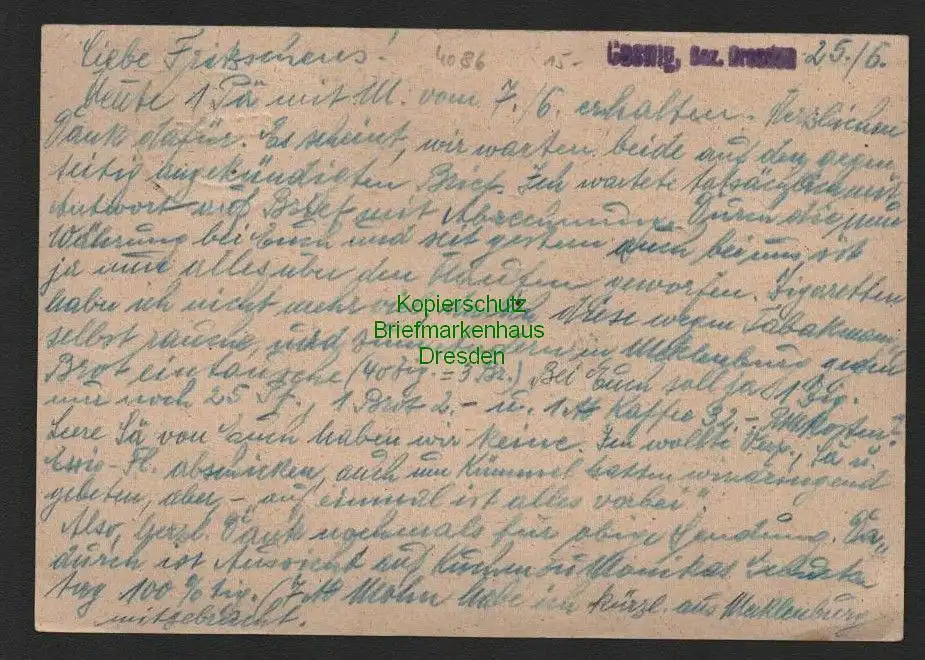 Liebe Fritzschens! 4086 15.- Coswig, Bez. Dresden 25./6.
Heute 1 Pä mit M. vom 7./6. erhalten. Herzlichen
Dank dafür. Es scheint, wir warten beide auf den gegen-
seitig angekündigten Brief. Ich wartete tatsächlich auf
Antwort auf Brief mit Abrechnung. Durch die neue
Währung bei Euch und seit gestern auch bei uns ist
ja nun alles über den Haufen geworfen. Zigaretten
habe ich nicht mehr diese wegen Tabakmangel
selbst rauche, und in Mecklenburg gegen
Brot eintausche (40 Zig. = 3 Br.) Bei Euch soll ja 1 Zig.
nur noch 25 Pf., 1 Brot 2.- u. 1 ℔ Kaffee 32.- kosten?
Leere Sä von Euch haben wir keine. Ich wollte Verp., Sä u.
Essig-Fl. abschicken, auch um Kümmel hatten wir dringend
gebeten, aber, - "auf einmal ist alles vorbei".
Also, herzl. Dank nochmals für obige Sendung. Da-
durch ist Aussicht auf Kuchen zu Monikas
tag 100 %tig. (7 ℔ Mohn habe ich kürzl. aus Mecklenburg
mitgebracht.
Kopierschutz
Briefmarkenhaus
Dresden